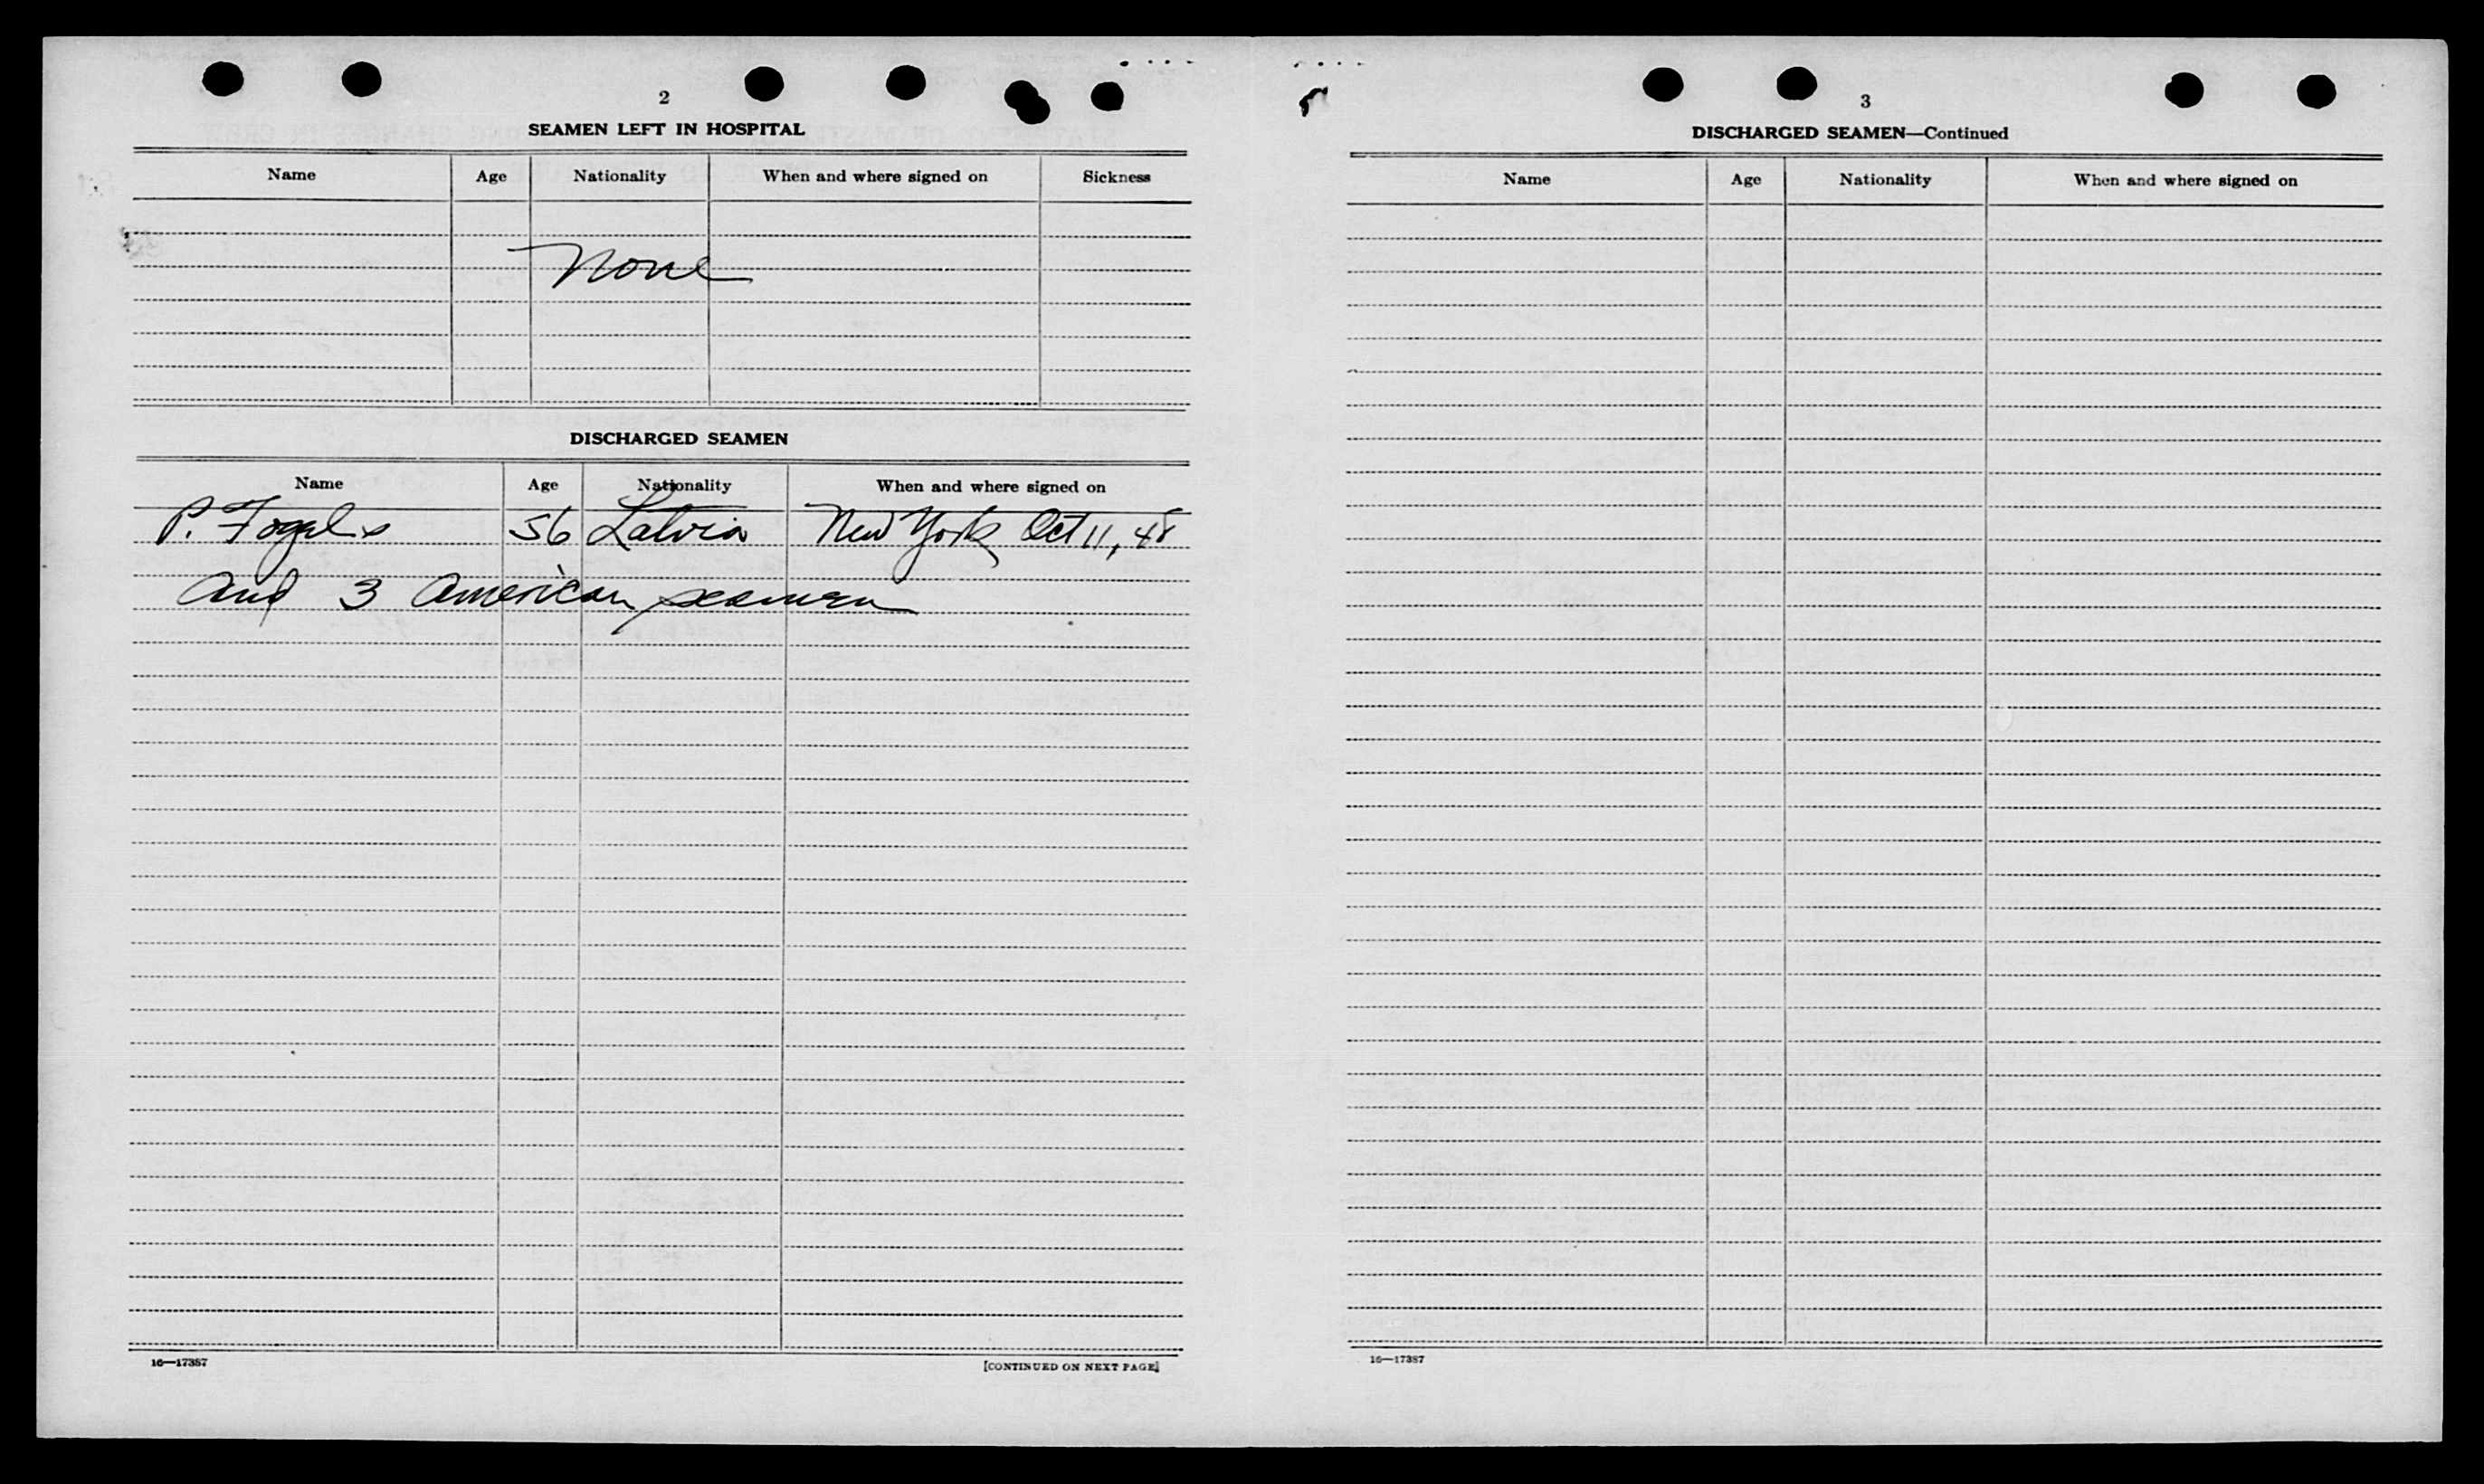 2
SEAMEN LEFT IN HOSPITAL
Name Age Nationality When and where signed on Sickness
None
DISCHARGED SEAMEN
Name Age Nationality When and where signed on
P. Fogels 56 Latvia New York Oct 11, 48
and 3 American seamen
16—17387
[CONTINUED ON NEXT PAGE]
3
DISCHARGED SEAMEN—Continued
Name Age Nationality When and where signed on
16—17387